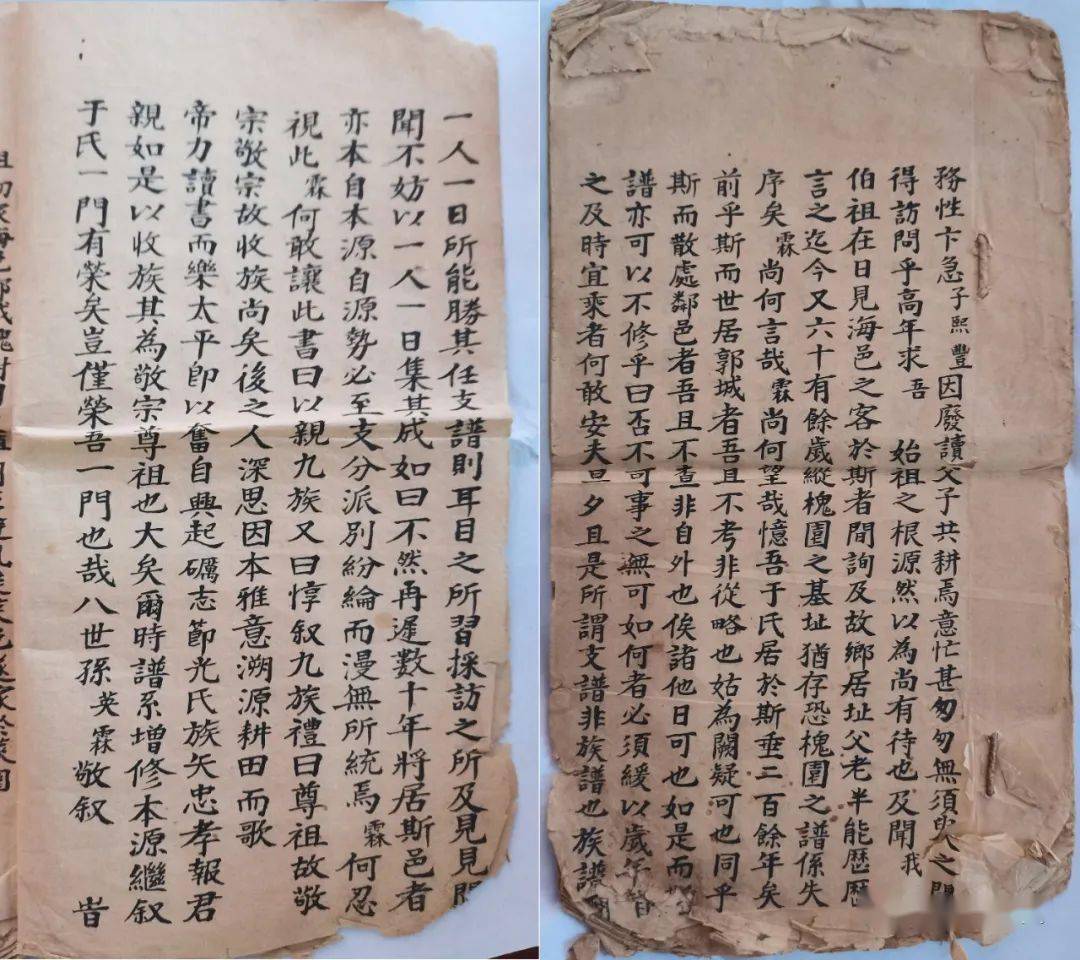 務性卞急子熙豐因廢讀父子共耕焉意忙甚匆匆無須臾之
得訪問乎高年求吾始祖之根源然以為尚有待也及聞我
伯祖在日見海邑之客於斯者間詢及故鄉居址父老半能歷歷
言之迄今又六十有餘歲縱槐園之基址猶存恐槐園之譜係失
序矣霖尚何言哉霖尚何望哉憶吾于氏居於斯垂二百餘年矣
前乎斯而世居郭城者吾且不考非從略也姑為闕疑可也同乎
斯而散處鄰邑者吾且不查非自外也俟諸他日可也如是而
譜亦可以不修乎曰否不可事之無可如何者必須緩以歲年
之及時宜乘者何敢安夫旦夕且是所謂支譜非族譜也族譜
一人一日所能勝其任支譜則耳目之所習採訪之所及見見聞
聞不妨以一人一日集其成如曰不然再遲數十年將居斯邑者
亦本自本源自源勢必至支分派別紛綸而漫無所統焉霖何忍
視此霖何敢讓此書曰以親九族又曰惇叙九族禮曰尊祖故敬
宗敬宗故收族尚矣後之人深思因本雅意溯源耕田而歌
帝力讀書而樂太平即以奮自興起礪志節光氏族矢忠孝報君
親如是以收族其為敬宗尊祖也大矣爾時譜系增修本源繼叙
于氏一門有榮矣豈僅榮吾一門也哉八世孫英霖敬叙 旹